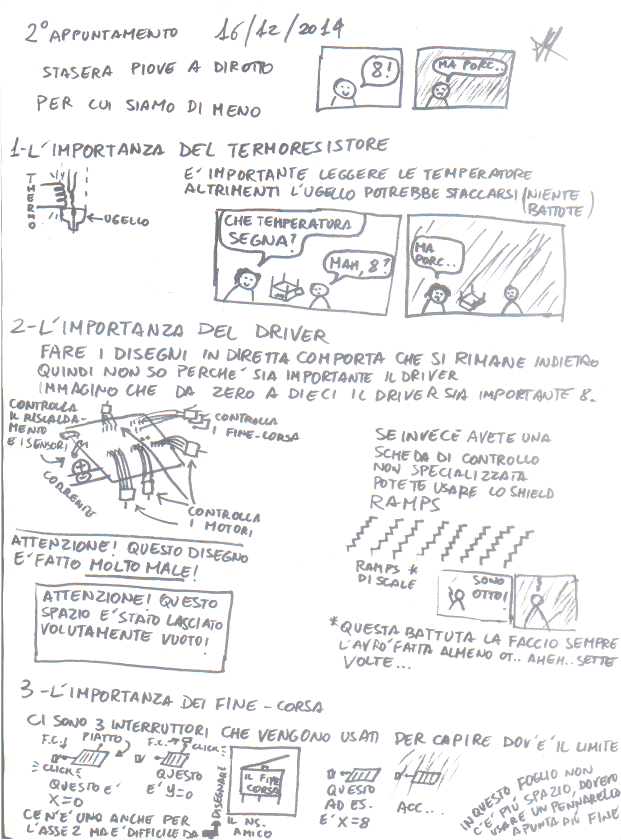 2° APPUNTAMENTO 16/12/2014
STASERA PIOVE A DIROTTO
PER CUI SIAMO DI MENO
8!
MA PORC..
1-L'IMPORTANZA DEL TERMORESISTORE
THERMO
UGELLO
E' IMPORTANTE LEGGERE LE TEMPERATURE
ALTRIMENTI L'UGELLO POTREBBE STACCARSI (NIENTE
BATTUTE)
CHE TEMPERATURA
SEGNA?
MAH, 8?
MA
PORC..
2-L'IMPORTANZA DEL DRIVER
FARE I DISEGNI IN DIRETTA COMPORTA CHE SI RIMANE INDIETRO
QUINDI NON SO PERCHE' SIA IMPORTANTE IL DRIVER
IMMAGINO CHE DA ZERO A DIECI IL DRIVER SIA IMPORTANTE 8.
CONTROLLA
IL RISCALDA-
MENTO
E I SENSORI
CORRENTE
CONTROLLA
I FINE-CORSA
CONTROLLA
I MOTORI
ATTENZIONE! QUESTO DISEGNO
E' FATTO MOLTO MALE!
ATTENZIONE! QUESTO
SPAZIO E' STATO LASCIATO
VOLUTAMENTE VUOTO!
SE INVECE AVETE UNA
SCHEDA DI CONTROLLO
NON SPECIALIZZATA
POTETE USARE LO SHIELD
RAMPS
RAMPS *
DI SCALE
SONO
OTTO!
* QUESTA BATTUTA LA FACCIO SEMPRE
L'AVRO' FATTA ALMENO OT.. AHEH.. SETTE
VOLTE...
3-L'IMPORTANZA DEI FINE-CORSA
CI SONO 3 INTERRUTTORI CHE VENGONO USATI PER CAPIRE DOV'E' IL LIMITE
F.C. PIATTO
CLICK
QUESTO E'
X=0
F.C.
CLICK
QUESTO
E' Y=0
CE N'E' UNO ANCHE PER
L'ASSE Z MA E' DIFFICILE DA
DISEGNARE
IL FINE
CORSA
IL NS.
AMICO
QUESTO
AD ES.
E' X=8
ACC...
IN QUESTO FOGLIO NON
C'E' PIU' SPAZIO, DOVEVO
USARE UN PENNARELLO
A PUNTA PIU' FINE